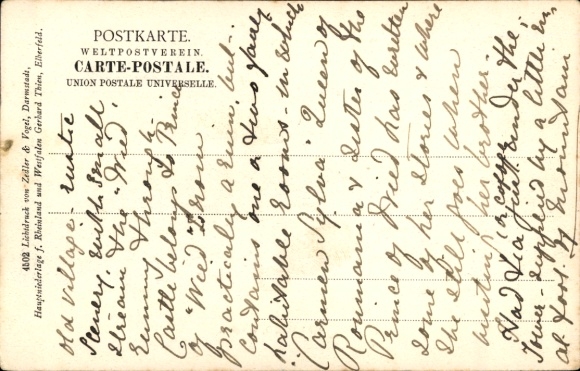 POSTKARTE.
WELTPOSTVEREIN.
CARTE-POSTALE.
UNION POSTALE UNIVERSELLE.
4502 Lichtdruck von Zedler & Vogel, Darmstadt,
Hauptniederlage f. Rheinland und Westfalen Gerhard Thien, Elberfeld.
old village - rustic
scenery with small
stream the "Wied"
running through -
Castle belongs to Prince
of "Wied" is now
practically a ruin, but -
contains one or two fairly
habitable rooms - in which
"Carmen Sylva" Queen of
Roumania & sister of the
Prince of Wied has written
some of her stories & where
she still goes when
visiting her brother -
Had coffee under the
Tower supplied by a little inn
at foot of mountain